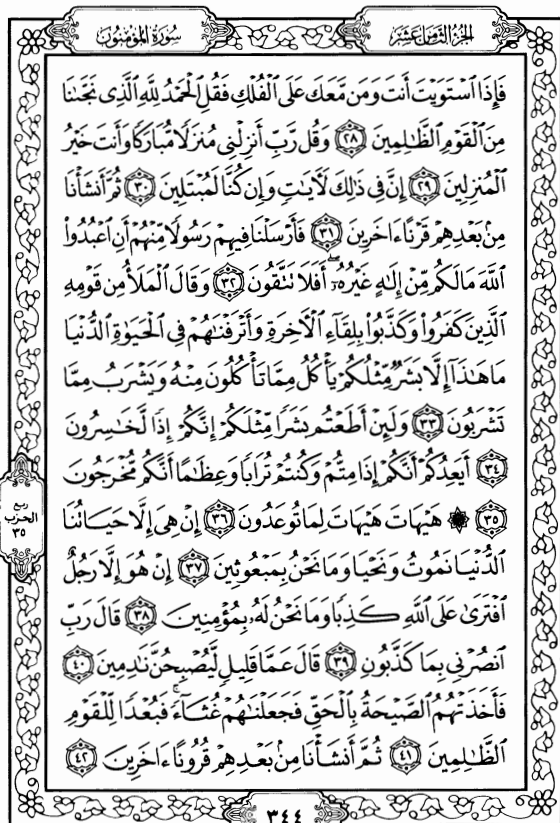 سُورَةُ المُؤْمِنُونَ
الجُزْءُ الثَّامِنَ عَشَرَ
فَإِذَا ٱسْتَوَيْتَ أَنتَ وَمَن مَّعَكَ عَلَى ٱلْفُلْكِ فَقُلِ ٱلْحَمْدُ لِلَّهِ ٱلَّذِى نَجَّىٰنَا
مِنَ ٱلْقَوْمِ ٱلظَّٰلِمِينَ ٢٨ وَقُل رَّبِّ أَنزِلْنِى مُنزَلًا مُّبَارَكًا وَأَنتَ خَيْرُ
ٱلْمُنزِلِينَ ٢٩ إِنَّ فِى ذَٰلِكَ لَـَٔايَٰتٍ وَإِن كُنَّا لَمُبْتَلِينَ ٣٠ ثُمَّ أَنشَأْنَا
مِنۢ بَعْدِهِمْ قَرْنًا ءَاخَرِينَ ٣١ فَأَرْسَلْنَا فِيهِمْ رَسُولًا مِّنْهُمْ أَنِ ٱعْبُدُوا۟
ٱللَّهَ مَا لَكُم مِّنْ إِلَٰهٍ غَيْرُهُۥٓ ۖ أَفَلَا تَتَّقُونَ ٣٢ وَقَالَ ٱلْمَلَأُ مِن قَوْمِهِ
ٱلَّذِينَ كَفَرُوا۟ وَكَذَّبُوا۟ بِلِقَآءِ ٱلْـَٔاخِرَةِ وَأَتْرَفْنَٰهُمْ فِى ٱلْحَيَوٰةِ ٱلدُّنْيَا
مَا هَٰذَآ إِلَّا بَشَرٌ مِّثْلُكُمْ يَأْكُلُ مِمَّا تَأْكُلُونَ مِنْهُ وَيَشْرَبُ مِمَّا
تَشْرَبُونَ ٣٣ وَلَئِنْ أَطَعْتُم بَشَرًا مِّثْلَكُمْ إِنَّكُمْ إِذًا لَّخَٰسِرُونَ
٣٤ أَيَعِدُكُمْ أَنَّكُمْ إِذَا مِتُّمْ وَكُنتُمْ تُرَابًا وَعِظَٰمًا أَنَّكُم مُّخْرَجُونَ
٣٥ ۞ هَيْهَاتَ هَيْهَاتَ لِمَا تُوعَدُونَ ٣٦ إِنْ هِىَ إِلَّا حَيَاتُنَا
ٱلدُّنْيَا نَمُوتُ وَنَحْيَا وَمَا نَحْنُ بِمَبْعُوثِينَ ٣٧ إِنْ هُوَ إِلَّا رَجُلٌ
ٱفْتَرَىٰ عَلَى ٱللَّهِ كَذِبًا وَمَا نَحْنُ لَهُۥ بِمُؤْمِنِينَ ٣٨ قَالَ رَبِّ
ٱنصُرْنِى بِمَا كَذَّبُونِ ٣٩ قَالَ عَمَّا قَلِيلٍ لَّيُصْبِحُنَّ نَٰدِمِينَ ٤٠
فَأَخَذَتْهُمُ ٱلصَّيْحَةُ بِٱلْحَقِّ فَجَعَلْنَٰهُمْ غُثَآءً ۚ فَبُعْدًا لِّلْقَوْمِ
ٱلظَّٰلِمِينَ ٤١ ثُمَّ أَنشَأْنَا مِنۢ بَعْدِهِمْ قُرُونًا ءَاخَرِينَ ٤٢
ربع
الحزب
٣٥
٣٤٤